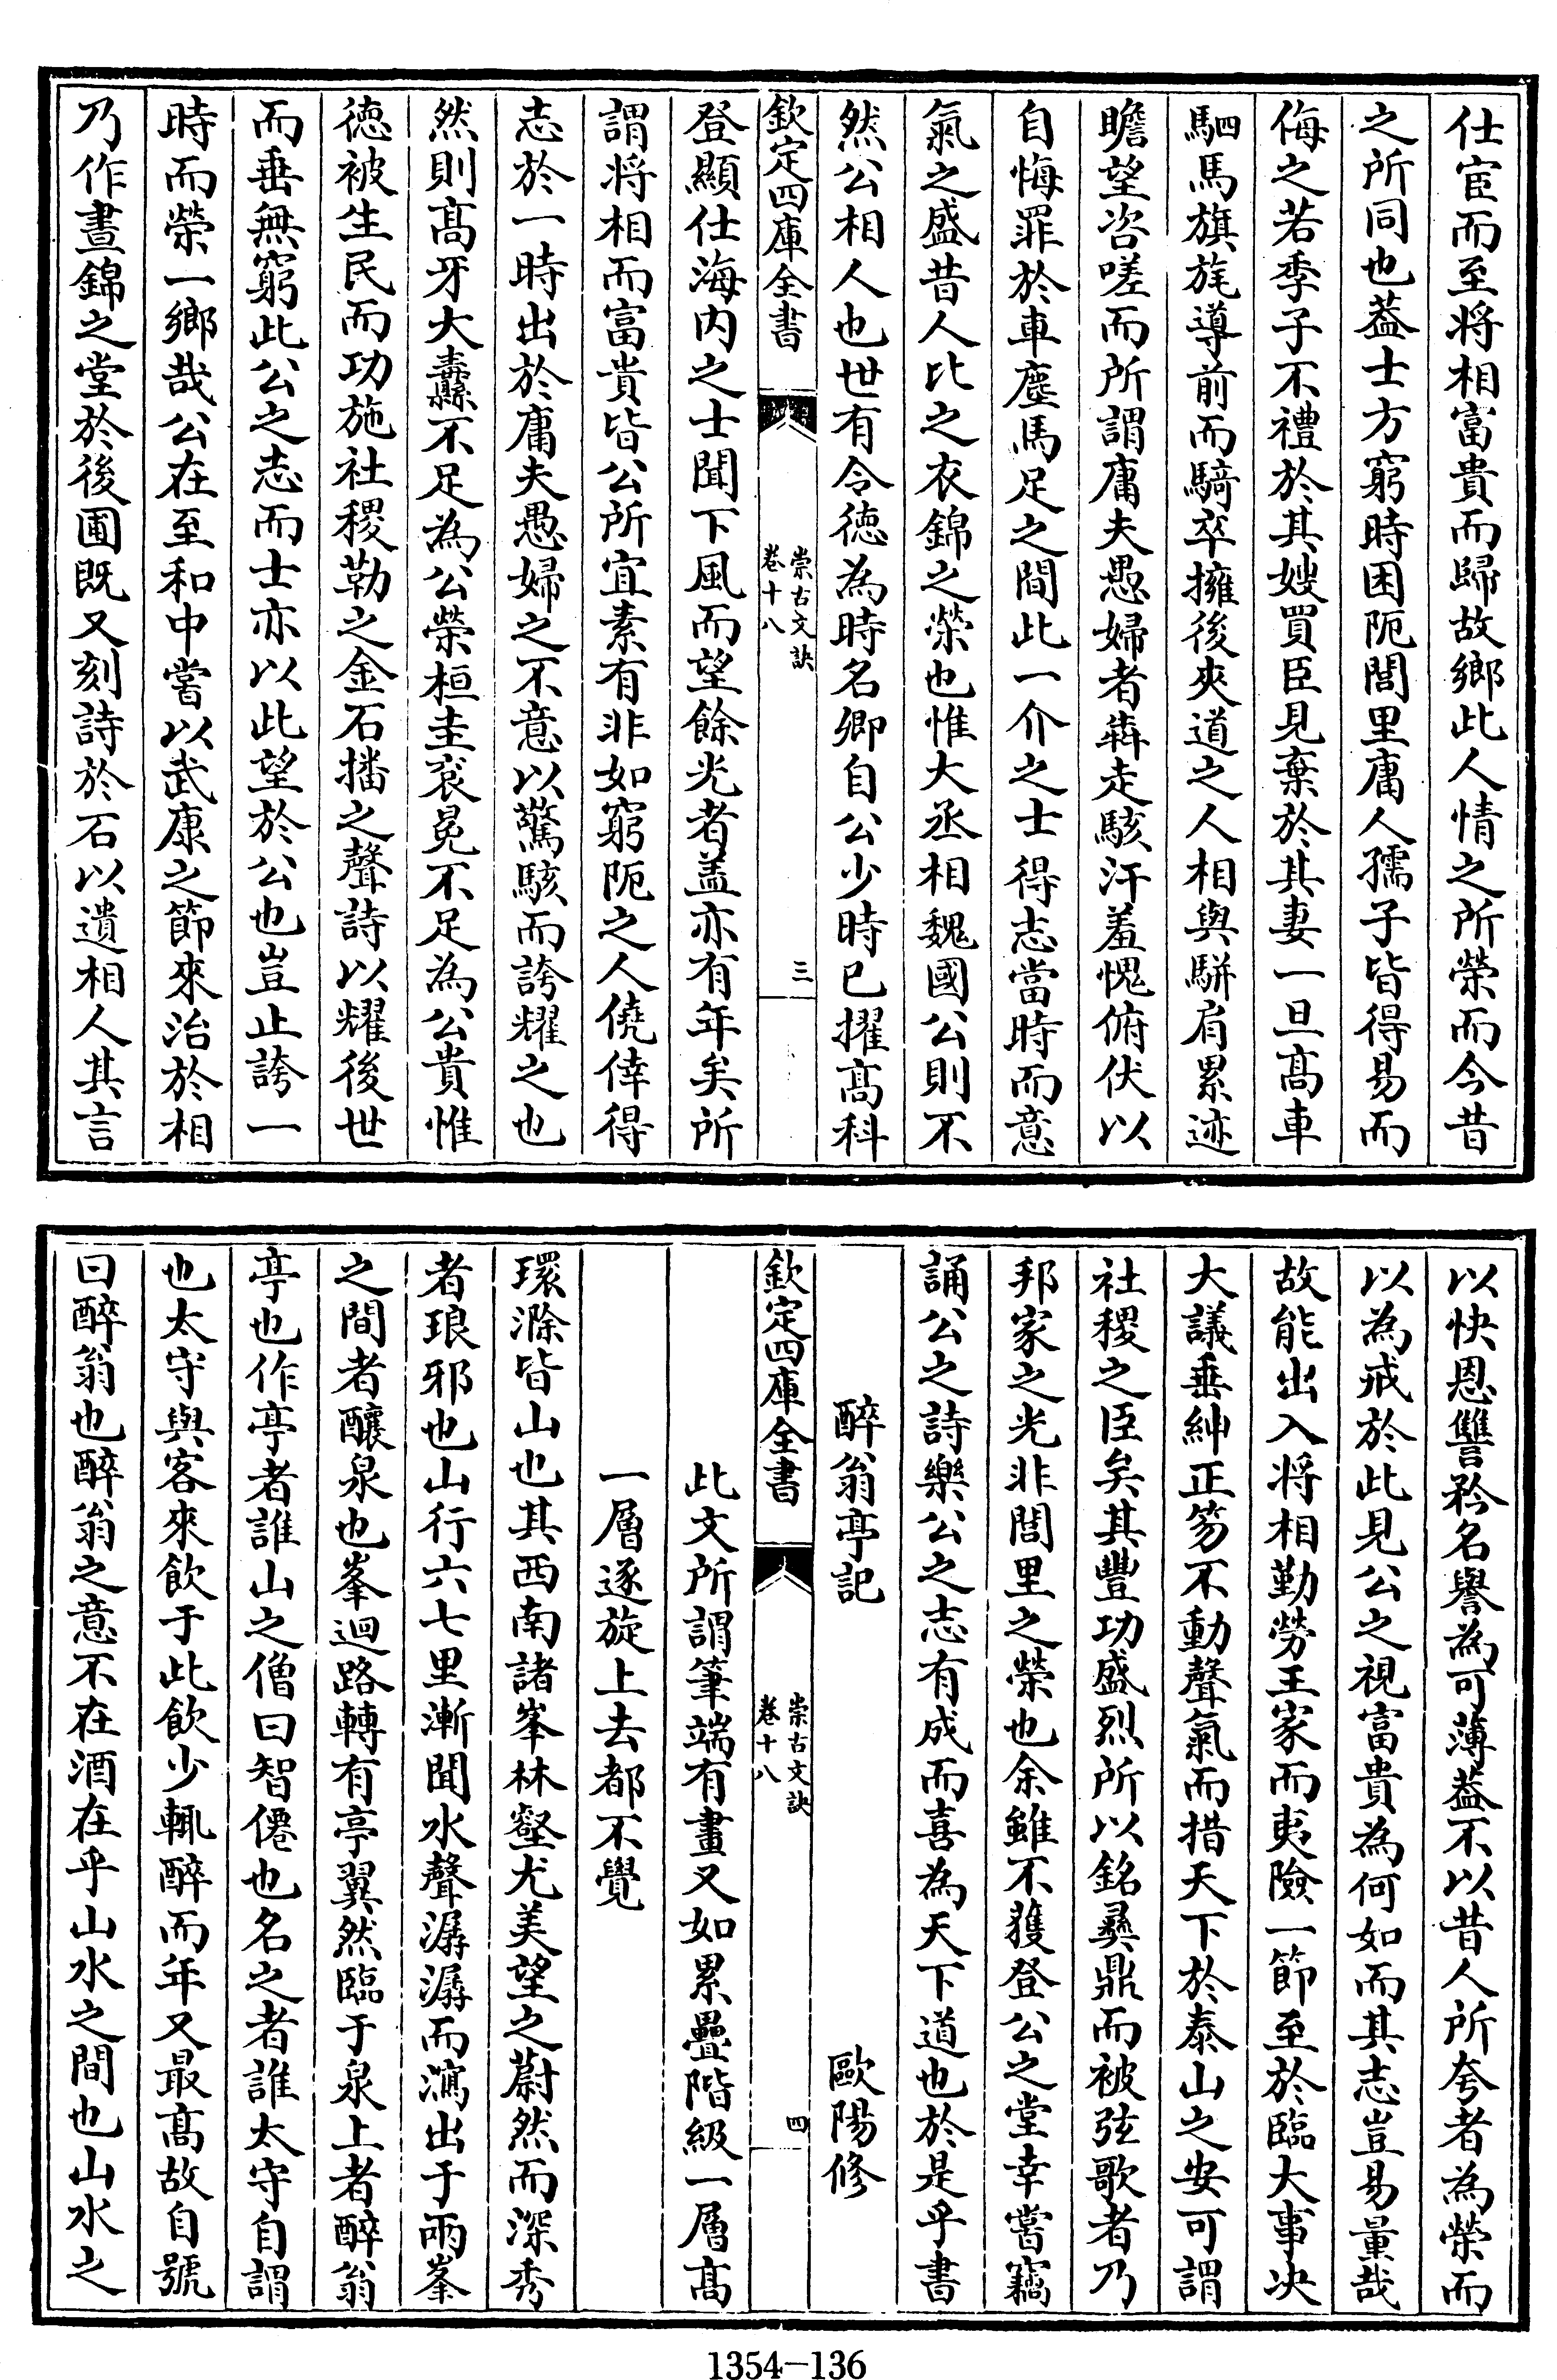 仕宦而至将相富貴而歸故鄉此人情之所榮而今昔
之所同也葢士方窮時困阨閭里庸人孺子皆得易而
侮之若季子不禮於其嫂買臣見棄於其妻一旦髙車
駟馬旗旄導前而騎卒擁後夾道之人相與駢肩累迹
瞻望咨嗟而所謂庸夫愚婦者犇走駭汗羞愧俯伏以
自悔罪於車塵馬足之間此一介之士得志當時而意
氣之盛昔人比之衣錦之榮也惟大丞相魏國公則不
然公相人也世有令徳為時名卿自公少時已擢髙科
欽定四庫全書
崇古文訣
卷十八
三
登顯仕海内之士聞下風而望餘光者盖亦有年矣所
謂将相而富貴皆公所宜素有非如窮阨之人僥倖得
志於一時出於庸夫愚婦之不意以驚駭而誇耀之也
然則髙牙大纛不足為公榮桓圭衮冕不足為公貴惟
徳被生民而功施社稷勒之金石播之聲詩以耀後世
而垂無窮此公之志而士亦以此望於公也豈止誇一
時而榮一鄉哉公在至和中嘗以武康之節來治於相
乃作晝錦之堂於後圃既又刻詩於石以遺相人其言
以快恩讐矜名譽為可薄葢不以昔人所夸者為榮而
以為戒於此見公之視富貴為何如而其志豈易量哉
故能出入将相勤勞王家而夷險一節至於臨大事决
大議垂紳正笏不動聲氣而措天下於泰山之安可謂
社稷之臣矣其豐功盛烈所以銘彞鼎而被弦歌者乃
邦家之光非閭里之榮也余雖不獲登公之堂幸嘗竊
誦公之詩樂公之志有成而喜為天下道也於是乎書
醉翁亭記 歐陽修
欽定四庫全書
崇古文訣
卷十八
四
此文所謂筆端有畫又如累疊階級一層髙
一層逐旋上去都不覺
環滁皆山也其西南諸峯林壑尤美望之蔚然而深秀
者琅邪也山行六七里漸聞水聲潺潺而㵼出于兩峯
之間者釀泉也峯迴路轉有亭翼然臨于泉上者醉翁
亭也作亭者誰山之僧曰智僊也名之者誰太守自謂
也太守與客來飲于此飲少輒醉而年又最髙故自號
曰醉翁也醉翁之意不在酒在乎山水之間也山水之
1354-136